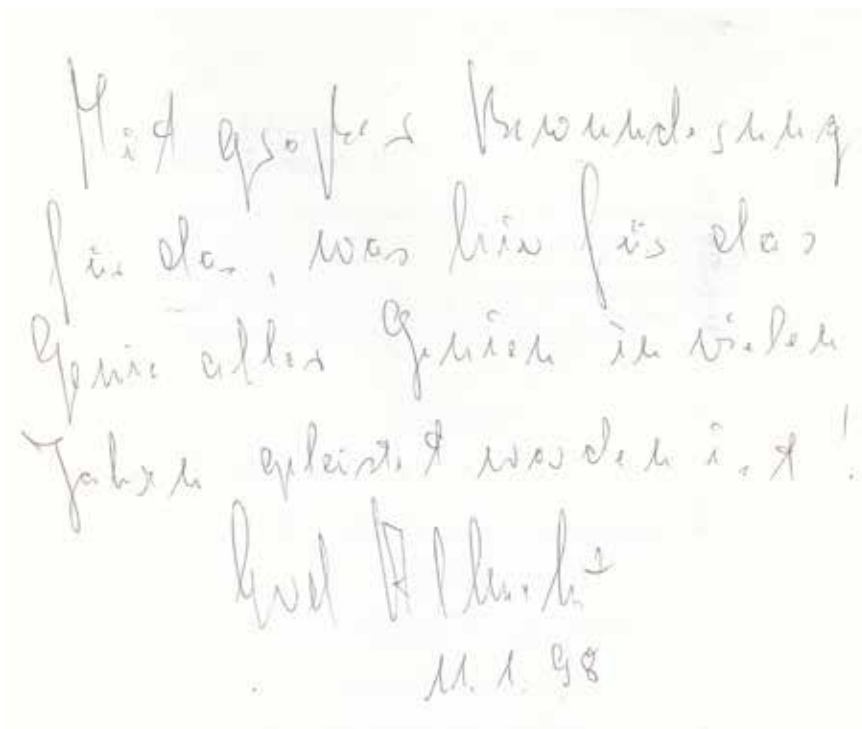 Mit großer Bewunderung
für das, was hier für das
Genie aller Genien in vielen
Jahren geleistet worden ist!
11.1.98